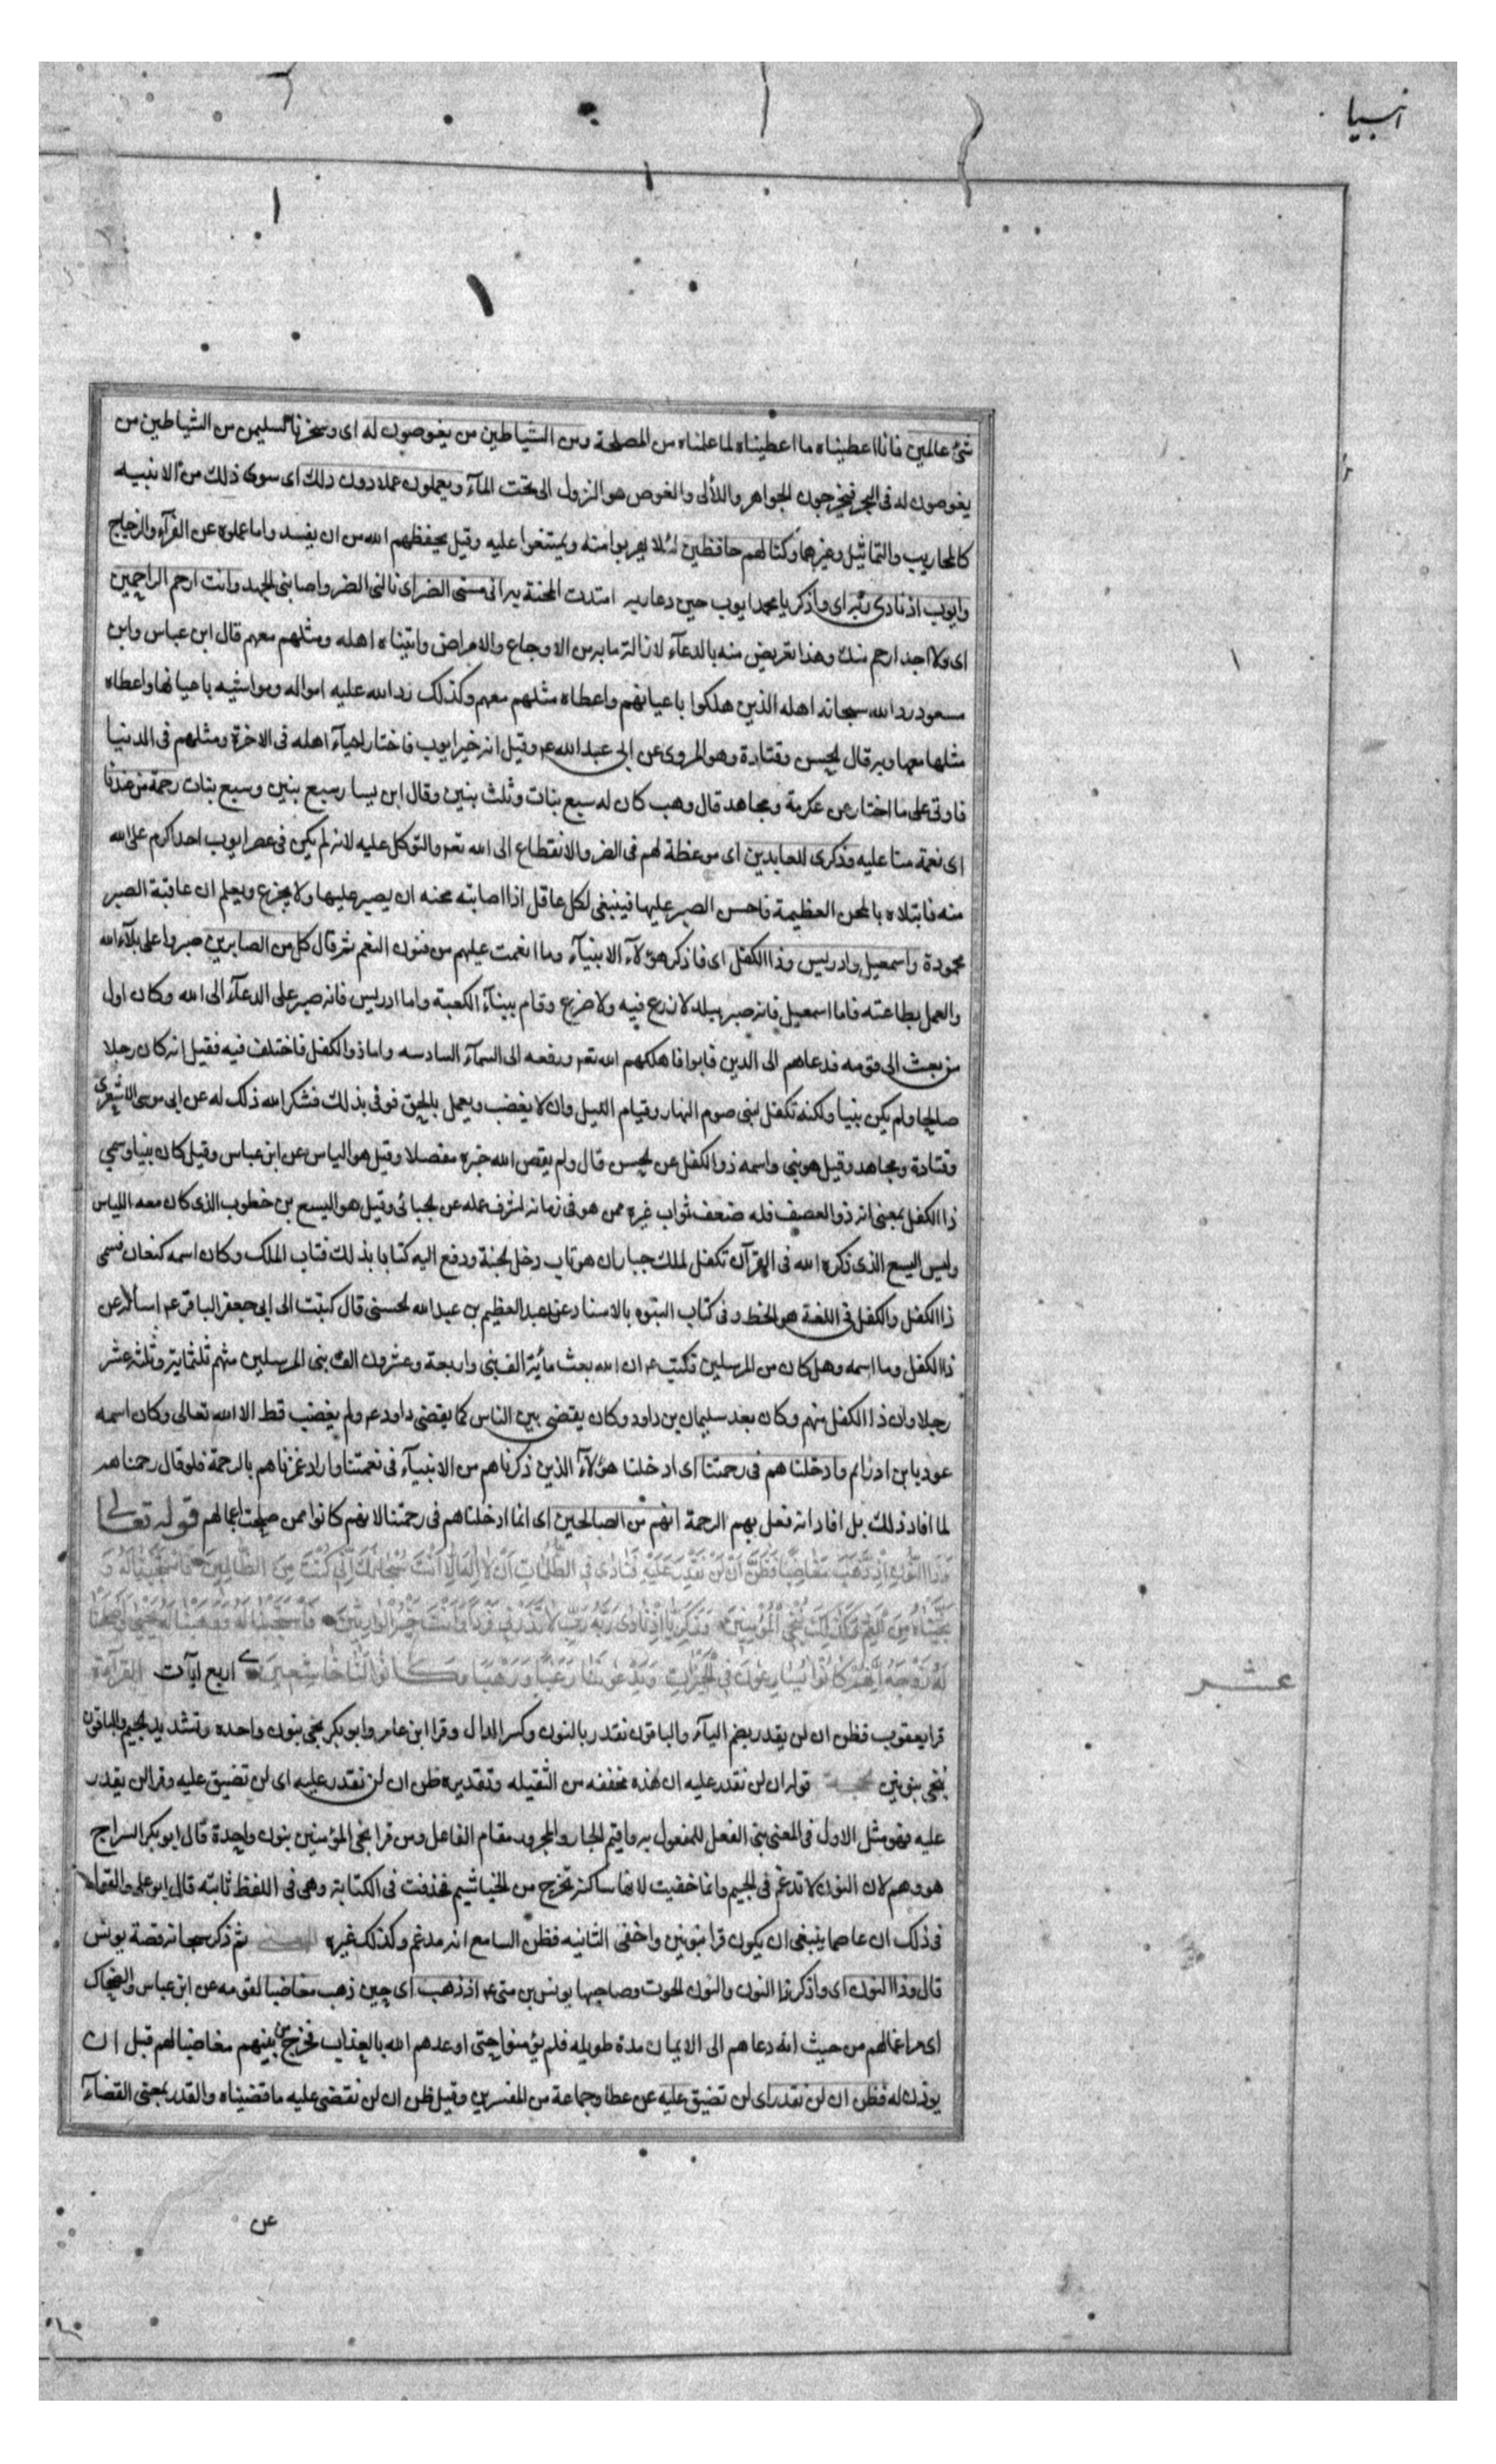 انبيا
شئ عالمين فانا اعطيناه ما اعطيناه لما علمناه من المصلحة ومن الشياطين من يغوصون له اى وسخرنا لسليمن من الشياطين من
يغوصون له فى البحر فيخرجون الجواهر واللألى والغوص هو النزول الى تحت المآء ويعملون عملا دون ذلك اى سوى ذلك من الابنيه
كالمحاريب والتماثيل وغيرهما وكنا لهم حافظين لئلا يهربوا منه ويمتنعوا عليه وقيل يحفظهم الله من ان يفسدوا ما عملوه عن الفرآء والزجاج
وايوب اذ نادى ربه اى واذكر يا محمد ايوب حين دعا ربه امتدت المحنة به انى مسنى الضر اى نالنى الضر واصابنى الجهد وانت ارحم الراحمين
اى ولا احد ارحم منك وهذا تعريض منه بالدعآء لازالة ما به من الاوجاع والامراض واتيناه اهله ومثلهم معهم قال ابن عباس وابن
مسعود رد الله سبحانه اهله الذين هلكوا باعيانهم واعطاه مثلهم معهم وكذلك رد الله عليه امواله ومواشيه باعيانها واعطاه
مثلها معها وبه قال الحسن وقتادة وهو المروى عن ابى عبد الله عم وقيل انه خير ايوب فاختار احيآء اهله فى الاخرة ومثلهم فى الدنيا
فاوتى على ما اختار عن عكرمة ومجاهد قال وهب كان له سبع بنات وثلث بنين وقال ابن يسار سبع بنين وسبع بنات رحمة من عندنا
اى نعمة منا عليه وذكرى للعابدين اى موعظة لهم فى الضر والانقطاع الى الله تعم والتوكل عليه لانه لم يكن فى عصر ايوب احد اكرم على الله
منه فابتلاه بالمحن العظيمة فاحسن الصبر عليها فينبغى لكل عاقل اذا اصابته محنه ان يصبر عليها ولا يجزع ويعلم ان عاقبة الصبر
محمودة واسمعيل وادريس وذا الكفل اى فاذكر هؤلآء الانبيآء وما انعمت عليهم من فنون النعم ثم قال كل من الصابرين صبروا على بلآء الله
والعمل بطاعته فاما اسمعيل فانه صبر ببلد لا زرع فيه ولا ضرع وقام ببنآء الكعبة واما ادريس فانه صبر على الدعآء الى الله وكان اول
من بعث الى قومه فدعاهم الى الدين فابوا فاهلكهم الله تعم ورفعه الى السمآء السادسه واما ذو الكفل فاختلف فيه فقيل انه كان رجلا
صالحا ولم يكن نبيا ولكنه تكفل لنبى صوم النهار وقيام الليل وان لا يغضب ويعمل بالحق فوفى بذلك فشكر الله ذلك له عن ابى موسى الاشعرى
وقتادة ومجاهد وقيل هو نبى واسمه ذو الكفل عن الحسن قال ولم يقص الله خبره مفصلا وقيل هو الياس عن ابن عباس وقيل كان نبيا وسمى
ذا الكفل بمعنى انه ذو الضعف فله ضعف ثواب غيره ممن هو فى زمانه لشرف عمله عن الجبائى وقيل هو اليسع بن خطوب الذى كان معه الياس
وليس اليسع الذى ذكره الله فى القرآن تكفل لملك جبار ان هو تاب دخل الجنة ودفع اليه كتابا بذلك فتاب الملك وكان اسمه كنعان فسمى
ذا الكفل والكفل فى اللغة هو الخط وفى كتاب النبوه بالاسناد عن عبد العظيم بن عبد الله الحسنى قال كتبت الى ابى جعفر الباقر عم اسأله عن
ذا الكفل وما اسمه وهل كان من المرسلين فكتب عم ان الله بعث مأية الف نبى واربعة وعشرون الف نبى المرسلين منهم ثلثماية وثلثة عشر
رجلا وان ذا الكفل منهم وكان بعد سليمان بن داود وكان يقضى بين الناس كما يقضى داود عم ولم يغضب قط الا الله تعالى وكان اسمه
عوديا بن ادرام وادخلناهم فى رحمتنا اى ادخلنا هؤلآء الذين ذكرناهم من الانبيآء فى نعمتنا واراد غمرناهم بالرحمة فلو قال رحمناهم
لما افاد ذلك بل افاد انه فعل بهم الرحمة انهم من الصالحين اى انما ادخلناهم فى رحمتنا لانهم كانوا ممن صلحت اعمالهم قوله تعالى
وَذَا النُّونِ اِذْ ذَهَبَ مُغَاضِبًا فَظَنَّ اَنْ لَنْ نَقْدِرَ عَلَيْهِ فَنَادَى فِى الظُّلُمَاتِ اَنْ لَا اِلَهَ اِلَّا اَنْتَ سُبْحَانَكَ اِنِّى كُنْتُ مِنَ الظَّالِمِينَ فَاسْتَجَبْنَا لَهُ وَ
نَجَّيْنَاهُ مِنَ الْغَمِّ وَكَذَلِكَ نُنْجِى الْمُؤْمِنِينَ وَزَكَرِيَّا اِذْ نَادَى رَبَّهُ رَبِّ لَا تَذَرْنِى فَرْدًا وَاَنْتَ خَيْرُ الْوَارِثِينَ فَاسْتَجَبْنَا لَهُ وَوَهَبْنَا لَهُ يَحْيَى وَاَصْلَحْنَا
لَهُ زَوْجَهُ اِنَّهُمْ كَانُوا يُسَارِعُونَ فِى الْخَيْرَاتِ وَيَدْعُونَنَا رَغَبًا وَرَهَبًا وَكَانُوا لَنَا خَاشِعِينَ اربع ايآت القراءة
عشر
قرا يعقوب فظن ان لن يقدر بضم اليآء والباقون نقدر بالنون وكسر الدال وقرا ابن عامر وابو بكر نجى بنون واحده وتشديد الجيم والباقون
ننجى بنونين قوله ان لن نقدر عليه ان هذه مخففه من الثقيله وتقديره ظن ان لن نقدر عليه اى لن نضيق عليه وقرا لن يقدر
عليه فهو مثل الاول فى المعنى بنى الفعل للمفعول به واقيم الجار والمجرور مقام الفاعل ومن قرا نجى المؤمنين بنون واحدة قال ابو بكر السراج
هو وهم لان النون لا تدغم فى الجيم وانما خفيت لانها ساكنة تخرج من الخياشيم فحذفت فى الكتابة وهى فى اللفظ ثابته قال ابو على والقول
فى ذلك ان عاصما ينبغى ان يكون قرا بنونين واخفى الثانيه فظن السامع انه مدغم وكذلك غيره ثم ذكر سبحانه قصة يونس
قال وذا النون اى واذكر ذا النون والنون الحوت وصاحبها يونس بن متى عم اذ ذهب اى حين ذهب مغاضبا لقومه عن ابن عباس والضحاك
اى مراغما لهم من حيث انه دعاهم الى الايمان مدة طويله فلم يؤمنوا حتى اوعدهم الله بالعذاب فخرج من بينهم مغاضبا لهم قبل ان
يؤذن له فظن ان لن نقدر اى لن نضيق عليه عن عطا وجماعة من المفسرين وقيل ظن ان لن نقضى عليه ما قضيناه والقدر بمعنى القضآء
عن